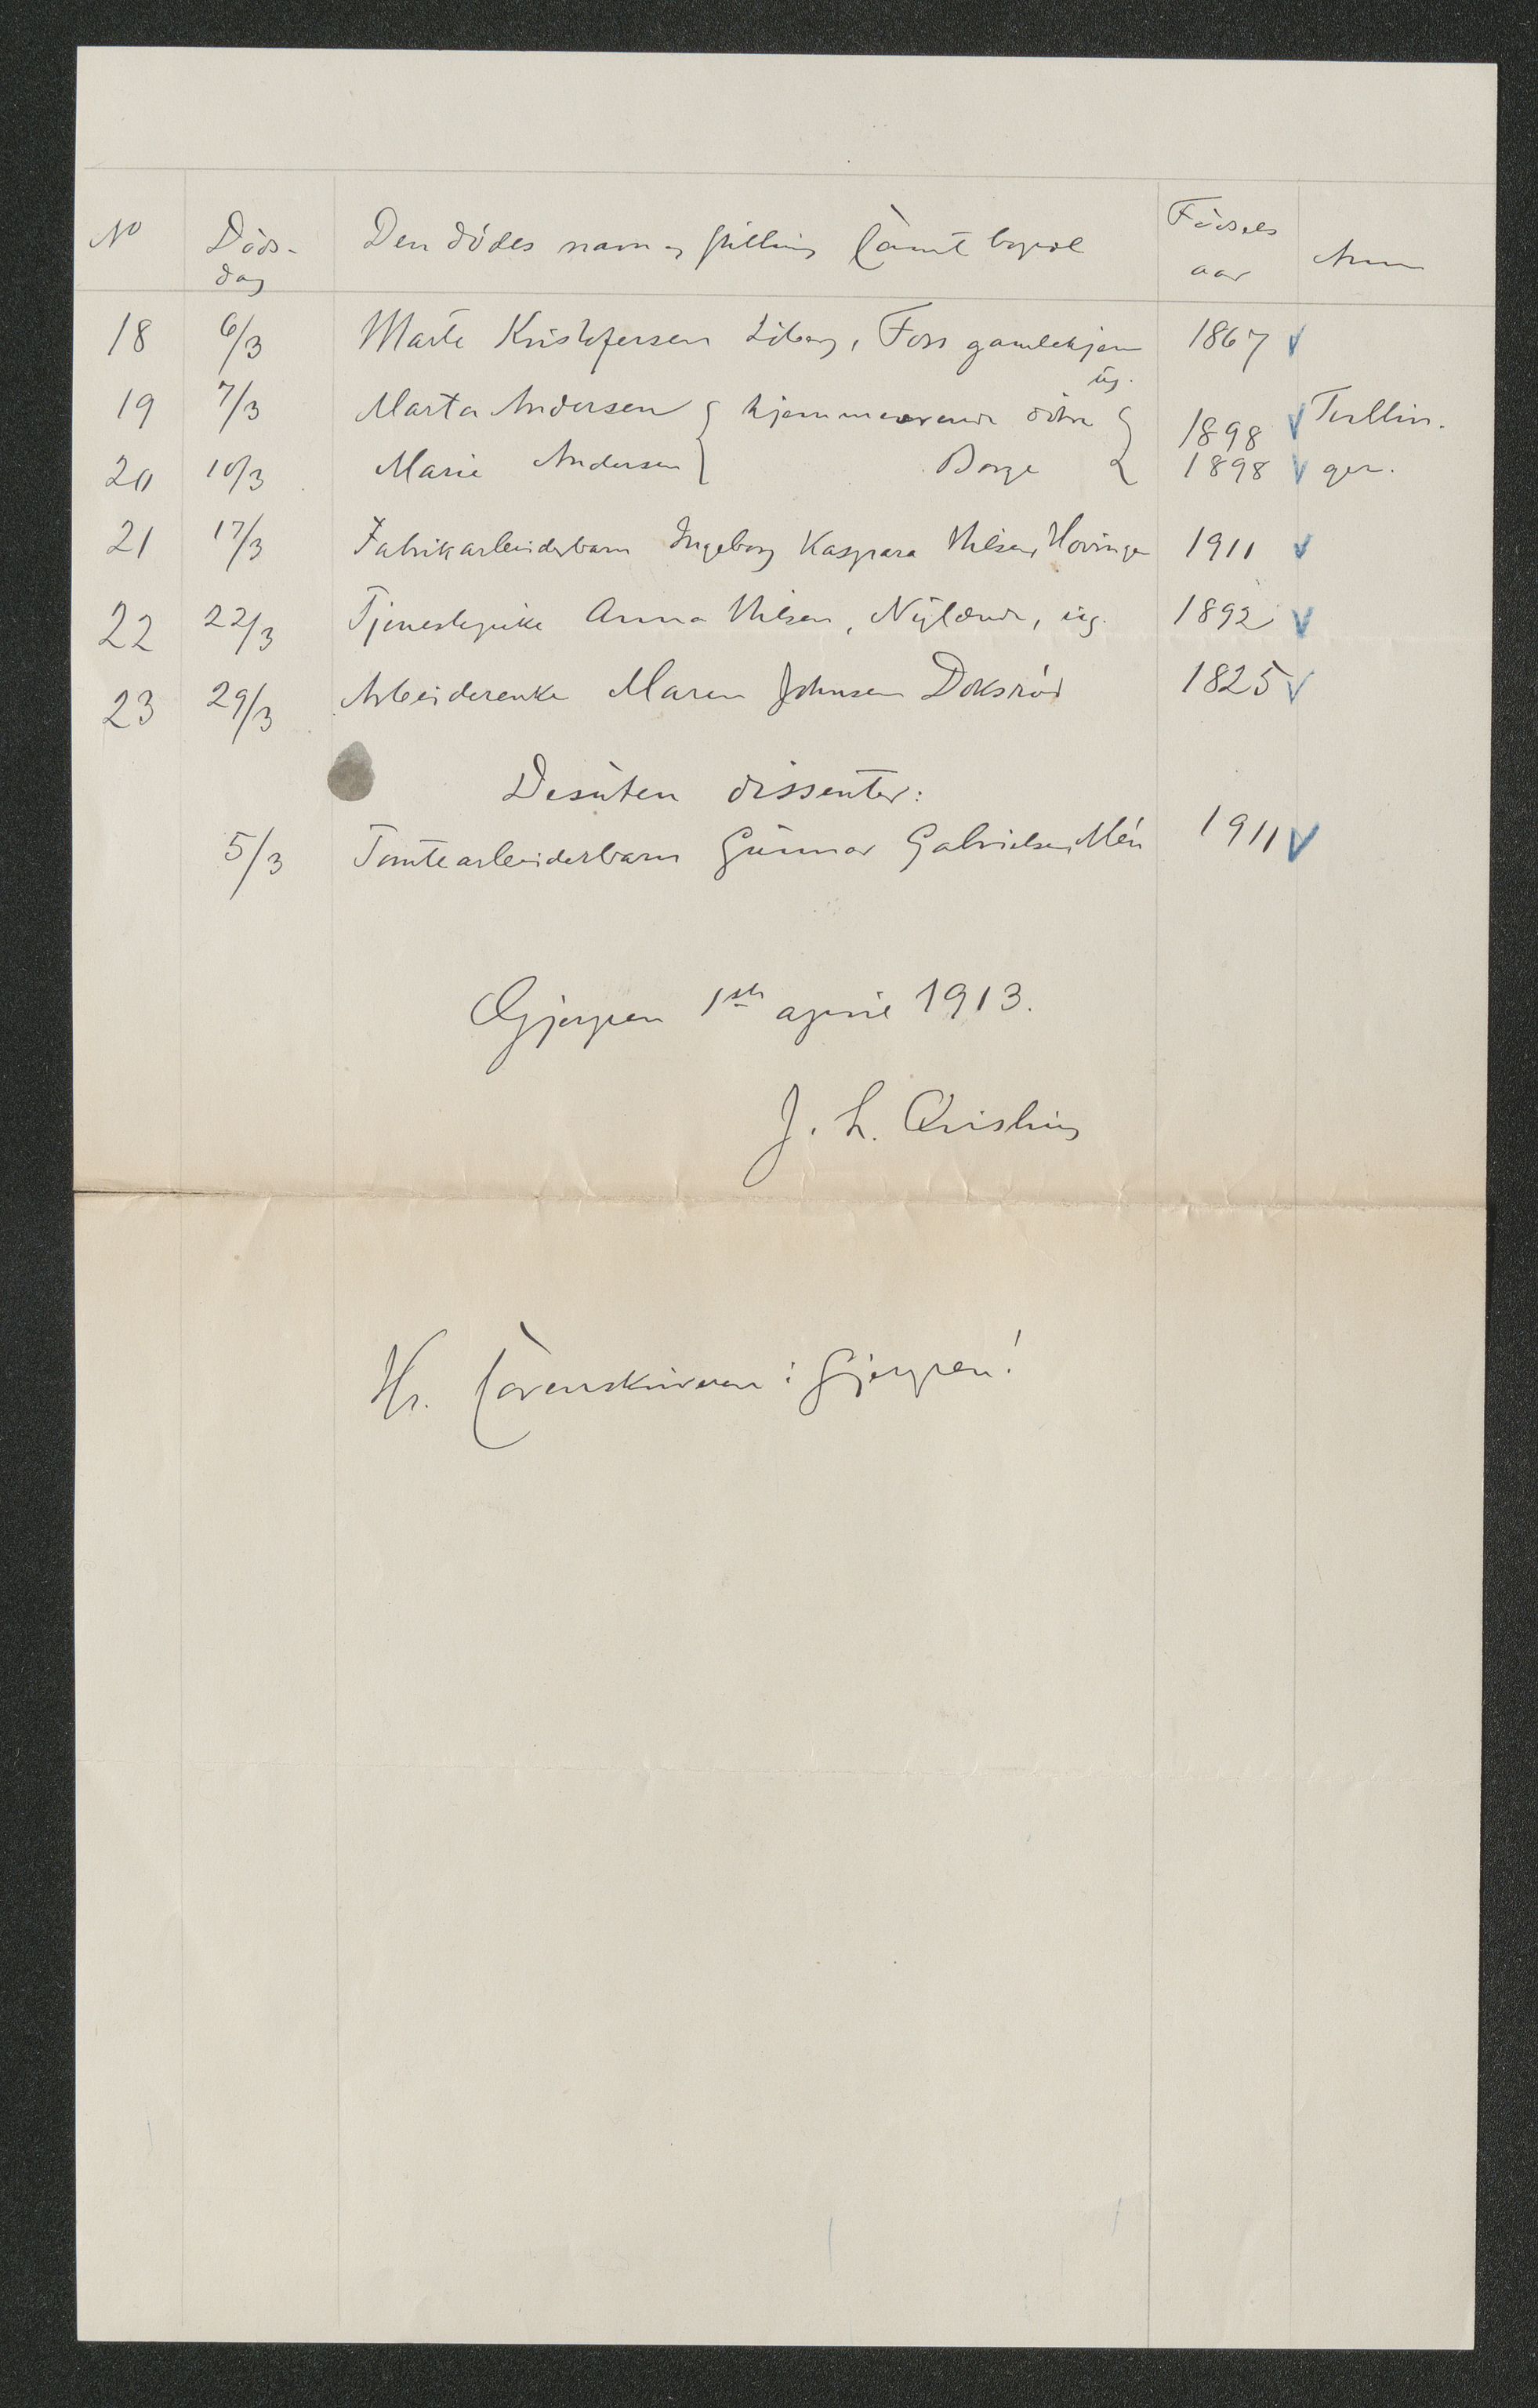 No Døds- Den dødes navn og stilling samt bopæl Fødsels Anm
dag aar
18 6/3 Marte Kristofersen Liberg, Foss gamlehjem 1867
ug.
19 7/3 Marta Andersen hjemmeværende døtre 1898 Tvillin-
20 10/3 Marie Andersen Borge 1898 ger.
21 17/3 Fabrikarbeiderbarn Ingeborg Kaspara Nilsen, Hovinga 1911
22 22/3 Tjenestepike Anna Nilsen, Nylænde, ug. 1892
23 29/3 Arbeiderenke Maren Johnsen Doksrød 1825
Desuten dissenter:
5/3 Tomtearbeiderbarn Gunnar Gabrielsen, Mén 1911
Gjerpen 1ste april 1913.
J. L. Qvisling
Hr. Sorenskriveren i Gjerpen!